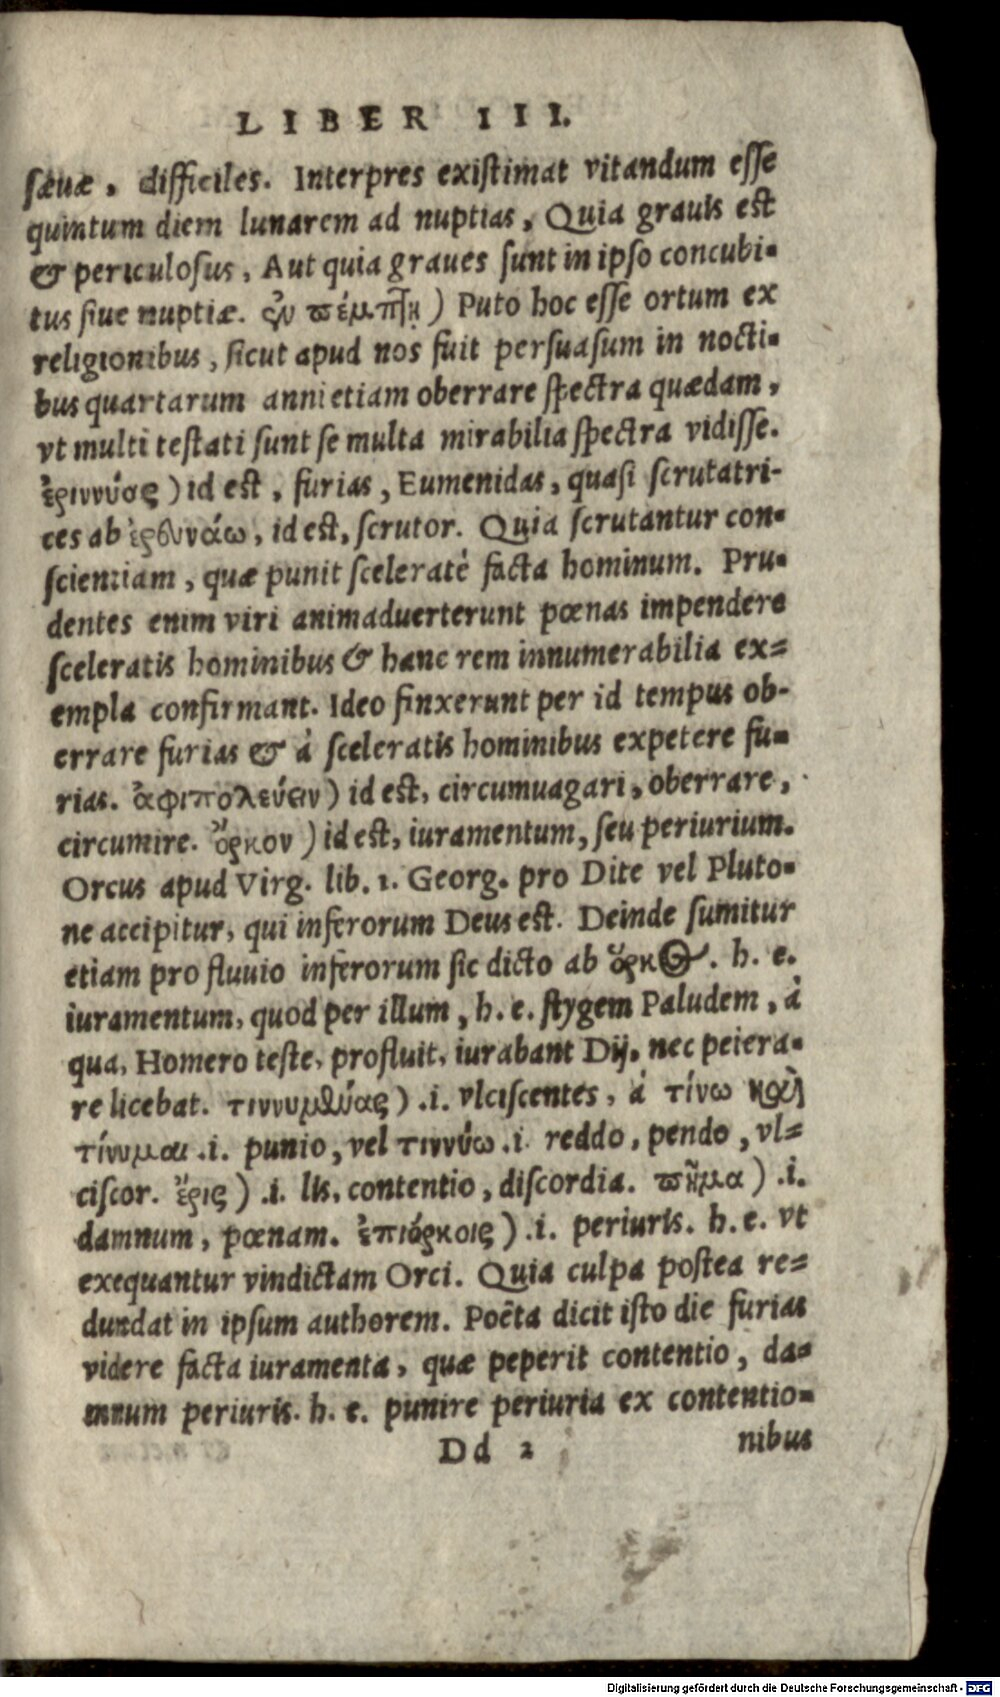 LIBER III.
sæuæ, difficiles. Interpres existimat vitandum esse
quintum diem lunarem ad nuptias, Quia grauis est
& periculosus, Aut quia graues sunt in ipso concubi-
tus siue nuptiæ. ἐν πέμπτῃ) Puto hoc esse ortum ex
religionibus, sicut apud nos fuit persuasum in nocti-
bus quartarum anni etiam oberrare spectra quædam,
vt multi testati sunt se multa mirabilia spectra vidisse.
ἐριννύας) id est, furias, Eumenidas, quasi scrutatri-
ces ab ἐρευνάω, id est, scrutor. Quia scrutantur con-
scientiam, quæ punit sceleratè facta hominum. Pru-
dentes enim viri animaduerterunt pœnas impendere
sceleratis hominibus & hanc rem innumerabilia ex-
empla confirmant. Ideo finxerunt per id tempus ob-
errare furias & à sceleratis hominibus expetere fu-
rias. ἀφιπολεύειν) id est, circumuagari, oberrare,
circumire. ὅρκον) id est, iuramentum, seu periurium.
Orcus apud Virg. lib. 1. Georg. pro Dite vel Pluto-
ne accipitur, qui inferorum Deus est. Deinde sumitur
etiam pro fluuio inferorum sic dicto ab ὅρκος. h. e.
iuramentum, quod per illum, h. e. stygem Paludem, à
qua, Homero teste, profluit, iurabant Dij, nec peiera-
re licebat. τιννυμθύας) .i. vlciscentes, á τίνω καὶ
τίνυμαι .i. punio, vel τιννύω .i. reddo, pendo, vl-
ciscor. ἔρις) .i. lis, contentio, discordia. πῆμα) .i.
damnum, pœnam. ἐπιόρκοις) .i. periuris. h. e. vt
exequantur vindictam Orci. Quia culpa postea re-
dundat in ipsum authorem. Poëta dicit isto die furias
videre facta iuramenta, quæ peperit contentio, da-
mnum periuris. h. e. punire periuria ex contentio-
Dd 2 nibus
Digitalisierung gefördert durch die Deutsche Forschungsgemeinschaft - DFG